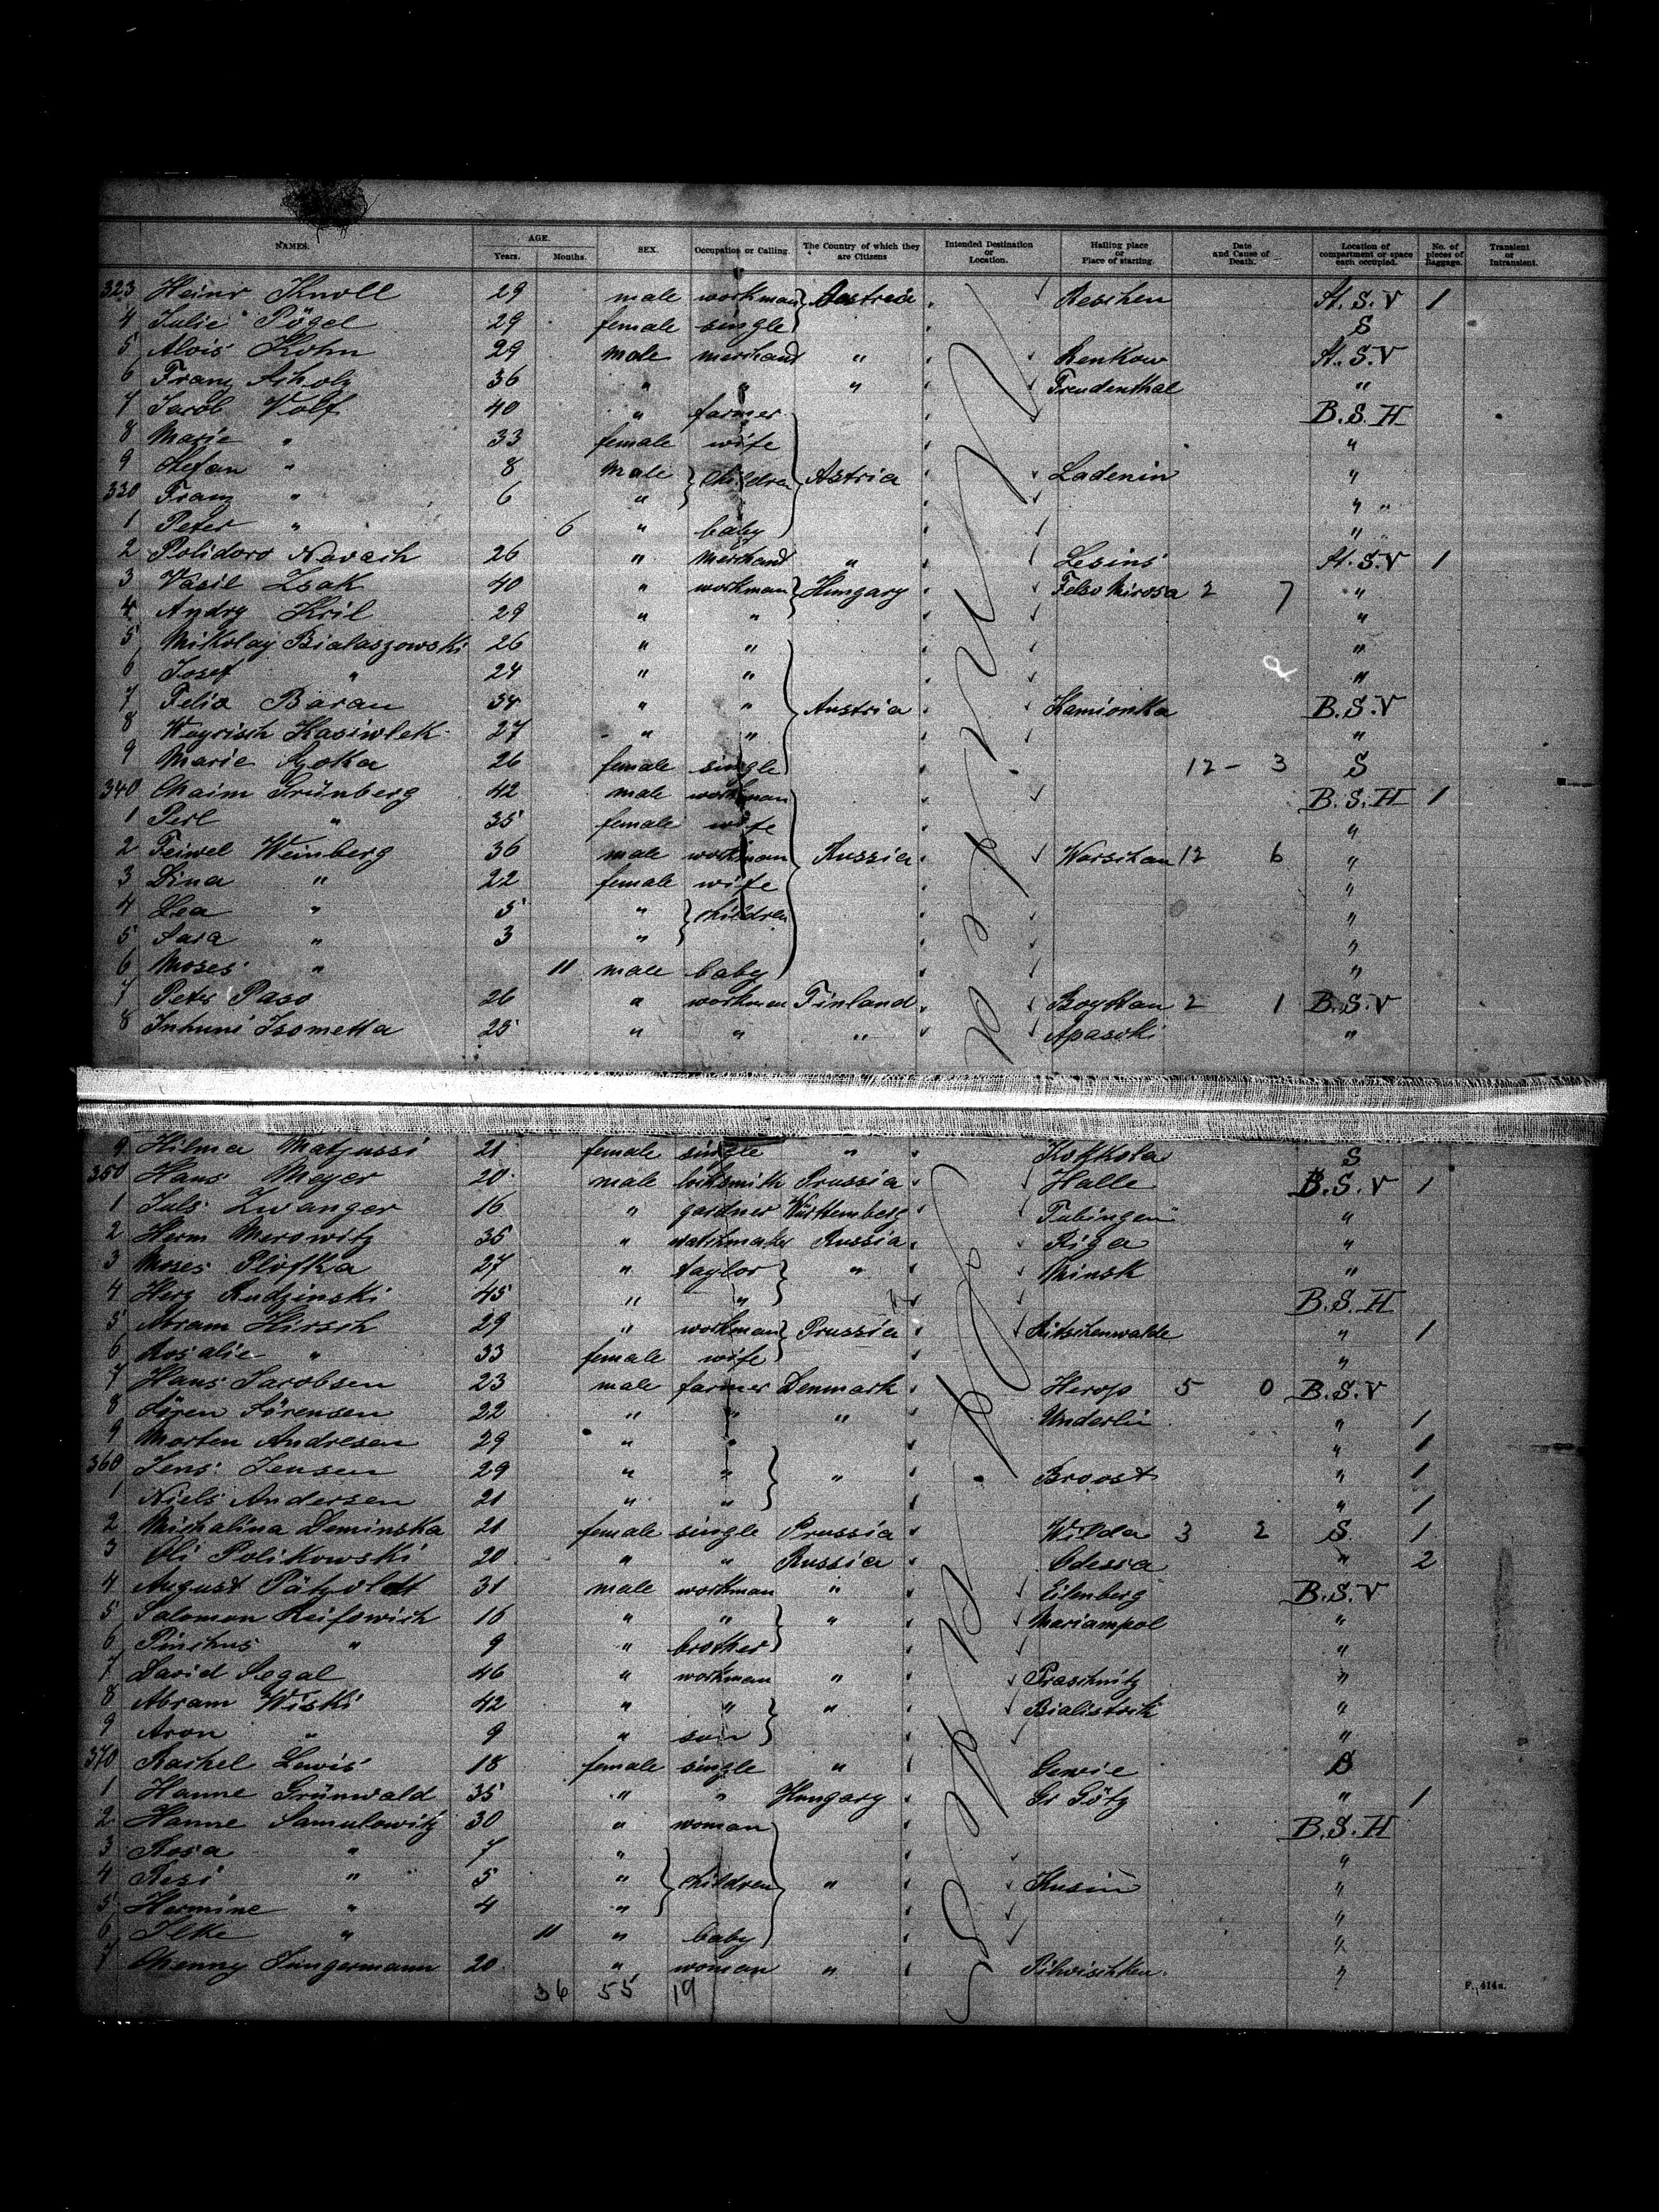 NAMES. AGE. Years. Months. SEX. Occupation or Calling. The Country of which they are Citizens Intended Destination or Location. Hailing place or Place of starting. Date and Cause of Death. Location of compartment or space each occupied. No. of pieces of Baggage. Transient or Intransient.
323 Heinr Knoll 29 male workman Austria Reschen St. S. V 1
4 Julie Pögel 29 female single S
5 Alois Kohn 29 male merchand " Renkow St. S. V
6 Franz Acholz 36 " " " Freudenthal "
7 Jacob Wolf 40 " farmer B. S. H
8 Marie " 33 female wife "
9 Stefan " 8 male children Astria Ladenin "
330 Franz " 6 " "
1 Peter " 6 " baby "
2 Polidoro Novach 26 " merchand " Lesins St. S. V 1
3 Vasil Zsak 40 " workman Hungary Felso Mirosa 2 7 "
4 Andry Kril 29 " " "
5 Mikolay Bialaszowski 26 " " "
6 Josef " 24 " " "
7 Felix Baran 34 " " Austria Kamionka B. S. V
8 Kasiwlek 27 " " "
9 Marie 26 female single 12 - 3 S
340 Chaim Grünberg 42 male workman B. S. H 1
1 Perl " 35 female wife "
2 Feiwel Weinberg 36 male workman Russia Warschau 12 6 "
3 Dina " 22 female wife "
4 Lea " 5 " children "
5 Sara " 3 " "
6 Moses " 11 male baby "
7 Peter Paso 26 " workman Finland 2 1 B. S. V
8 Isometta 25 " " " "
9 Hilma Matjussi 21 female single " Kotkola S
350 Hans Meyer 20 male locksmith Prussia Halle B. S. V 1
1 Juls Zwanger 16 " gardner Württemberg Tubingen "
2 Herm Merowitz 35 " watchmaker Russia Riga "
3 Moses Plofka 27 " taylor " Minsk "
4 Herz Rudzinski 45 " " B. S. H
5 Abram Hirsch 29 " workman Prussia Ritschenwalde " 1
6 Rosalie " 33 female wife "
7 Hans Jacobsen 23 male farmer Denmark Herop 5 0 B. S. V
8 Sören Sörensen 22 " " " Underlin " 1
9 Morten Andresen 29 " " " 1
360 Jens Jensen 29 " " " Broost " 1
1 Niels Andersen 21 " " " 1
2 Michalina Deminska 21 female single Prussia Wilda 3 2 S. 1
3 Oli Polikowski 20 " " Russia Odessa " 2
4 August Pätzoldt 31 male workman " Eilenberg B. S. V
5 Salomon Reifowich 16 " " " Mariampol "
6 Pinchus " 9 " brother "
7 David Segal 46 " workman " Praschnitz "
8 Abram Wiski 42 " " " Bialistock "
9 Aron " 9 " son "
370 Rachel Lewis 18 female single " Gewie S
1 Hanne Grünwald 35 " " Hungary Gr Götz " 1
2 Hanne Samulowitz 30 " woman B. S. H
3 Rosa " 7 " "
4 Resi " 5 " children " Kusin "
5 Hermine " 4 " "
6 Ilke " 11 " baby "
7 Chenny Jungermann 20 " woman " Pilwischken "
36 55 19
F. 414a.